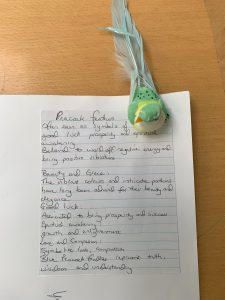 Peacock feathers
Often seen as symbols of
good luck prosperity and spiritual
awakening
Believed to ward off negative energy and
bring positive vibrations
Beauty and Grace:
The vibrant colours and intricate patterns
have long been admired for their beauty and
elegance
Good luck:
to bring prosperity and success
Spiritual awakening:
growth and
Love and Compassion:
Symbolise love, compassion
Blue Peacock feathers represent truth,
wisdom and understanding